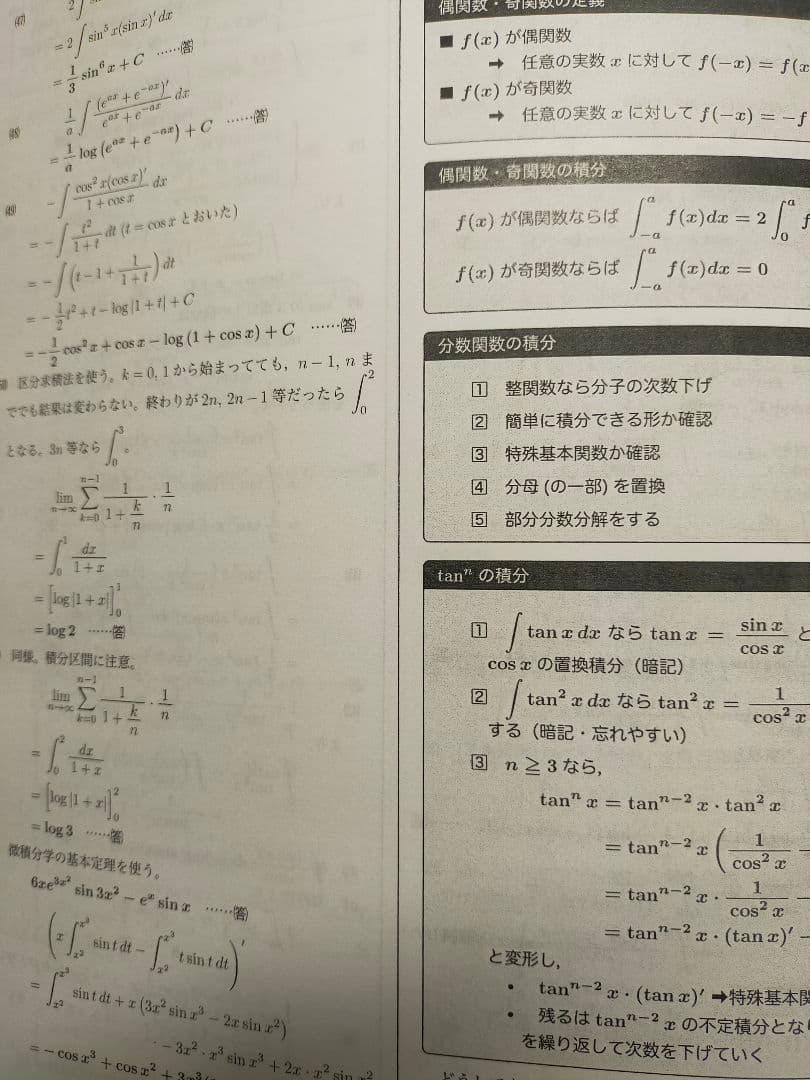 (47)
= 2∫ sin⁵ x(sin x)′ dx
= 1/3 sin⁶ x + C ……(答)
(48) 1/a ∫ (e^{ax} + e^{-ax})′/(e^{ax} + e^{-ax}) dx
= 1/a log (e^{ax} + e^{-ax}) + C ……(答)
(49) -∫ cos² x(cos x)′/(1 + cos x) dx
= -∫ t²/(1+t) dt (t = cos x とおいた)
= -∫ (t - 1 + 1/(1+t)) dt
= -1/2 t² + t - log |1 + t| + C
= -1/2 cos² x + cos x - log (1 + cos x) + C ……(答)
区分求積法を使う。k = 0, 1 から始まってても, n - 1, n ま
ででも結果は変わらない。終わりが 2n, 2n - 1 等だったら ∫₀²
となる。3n 等なら ∫₀³ 。
lim_{n→∞} Σ_{k=0}^{n-1} 1/(1 + k/n) · 1/n
= ∫₀¹ dx/(1 + x)
= [log |1 + x|]₀¹
= log 2 ……(答)
同様。積分区間に注意。
lim_{n→∞} Σ_{k=0}^{n-1} 1/(1 + k/n) · 1/n
= ∫₀² dx/(1 + x)
= [log |1 + x|]₀²
= log 3 ……(答)
微積分学の基本定理を使う。
6xe^{3x²} sin 3x² - e^x sin x ……(答)
(x ∫_{x²}^{x³} sin t dt - ∫_{x²}^{x³} t sin t dt)′
= ∫_{x²}^{x³} sin t dt + x (3x² sin x³ - 2x sin x²)
- 3x² · x³ sin x³ + 2x · x² sin x²
= - cos x³ + cos x² + 3x³
偶関数・奇関数の定義
■ f(x) が偶関数
➡ 任意の実数 x に対して f(-x) = f(x
■ f(x) が奇関数
➡ 任意の実数 x に対して f(-x) = -f
偶関数・奇関数の積分
f(x) が偶関数ならば ∫_{-a}^{a} f(x)dx = 2 ∫₀^a f
f(x) が奇関数ならば ∫_{-a}^{a} f(x)dx = 0
分数関数の積分
1 整関数なら分子の次数下げ
2 簡単に積分できる形か確認
3 特殊基本関数か確認
4 分母 (の一部) を置換
5 部分分数分解をする
tanⁿ の積分
1 ∫ tan x dx なら tan x = sin x/cos x と
cos x の置換積分（暗記）
2 ∫ tan² x dx なら tan² x = 1/cos² x
する（暗記・忘れやすい）
3 n ≧ 3 なら,
tanⁿ x = tan^{n-2} x · tan² x
= tan^{n-2} x (1/cos² x -
= tan^{n-2} x · 1/cos² x -
= tan^{n-2} x · (tan x)′ -
と変形し,
• tan^{n-2} x · (tan x)′ ➡特殊基本関
• 残るは tan^{n-2} x の不定積分とな
を繰り返して次数を下げていく